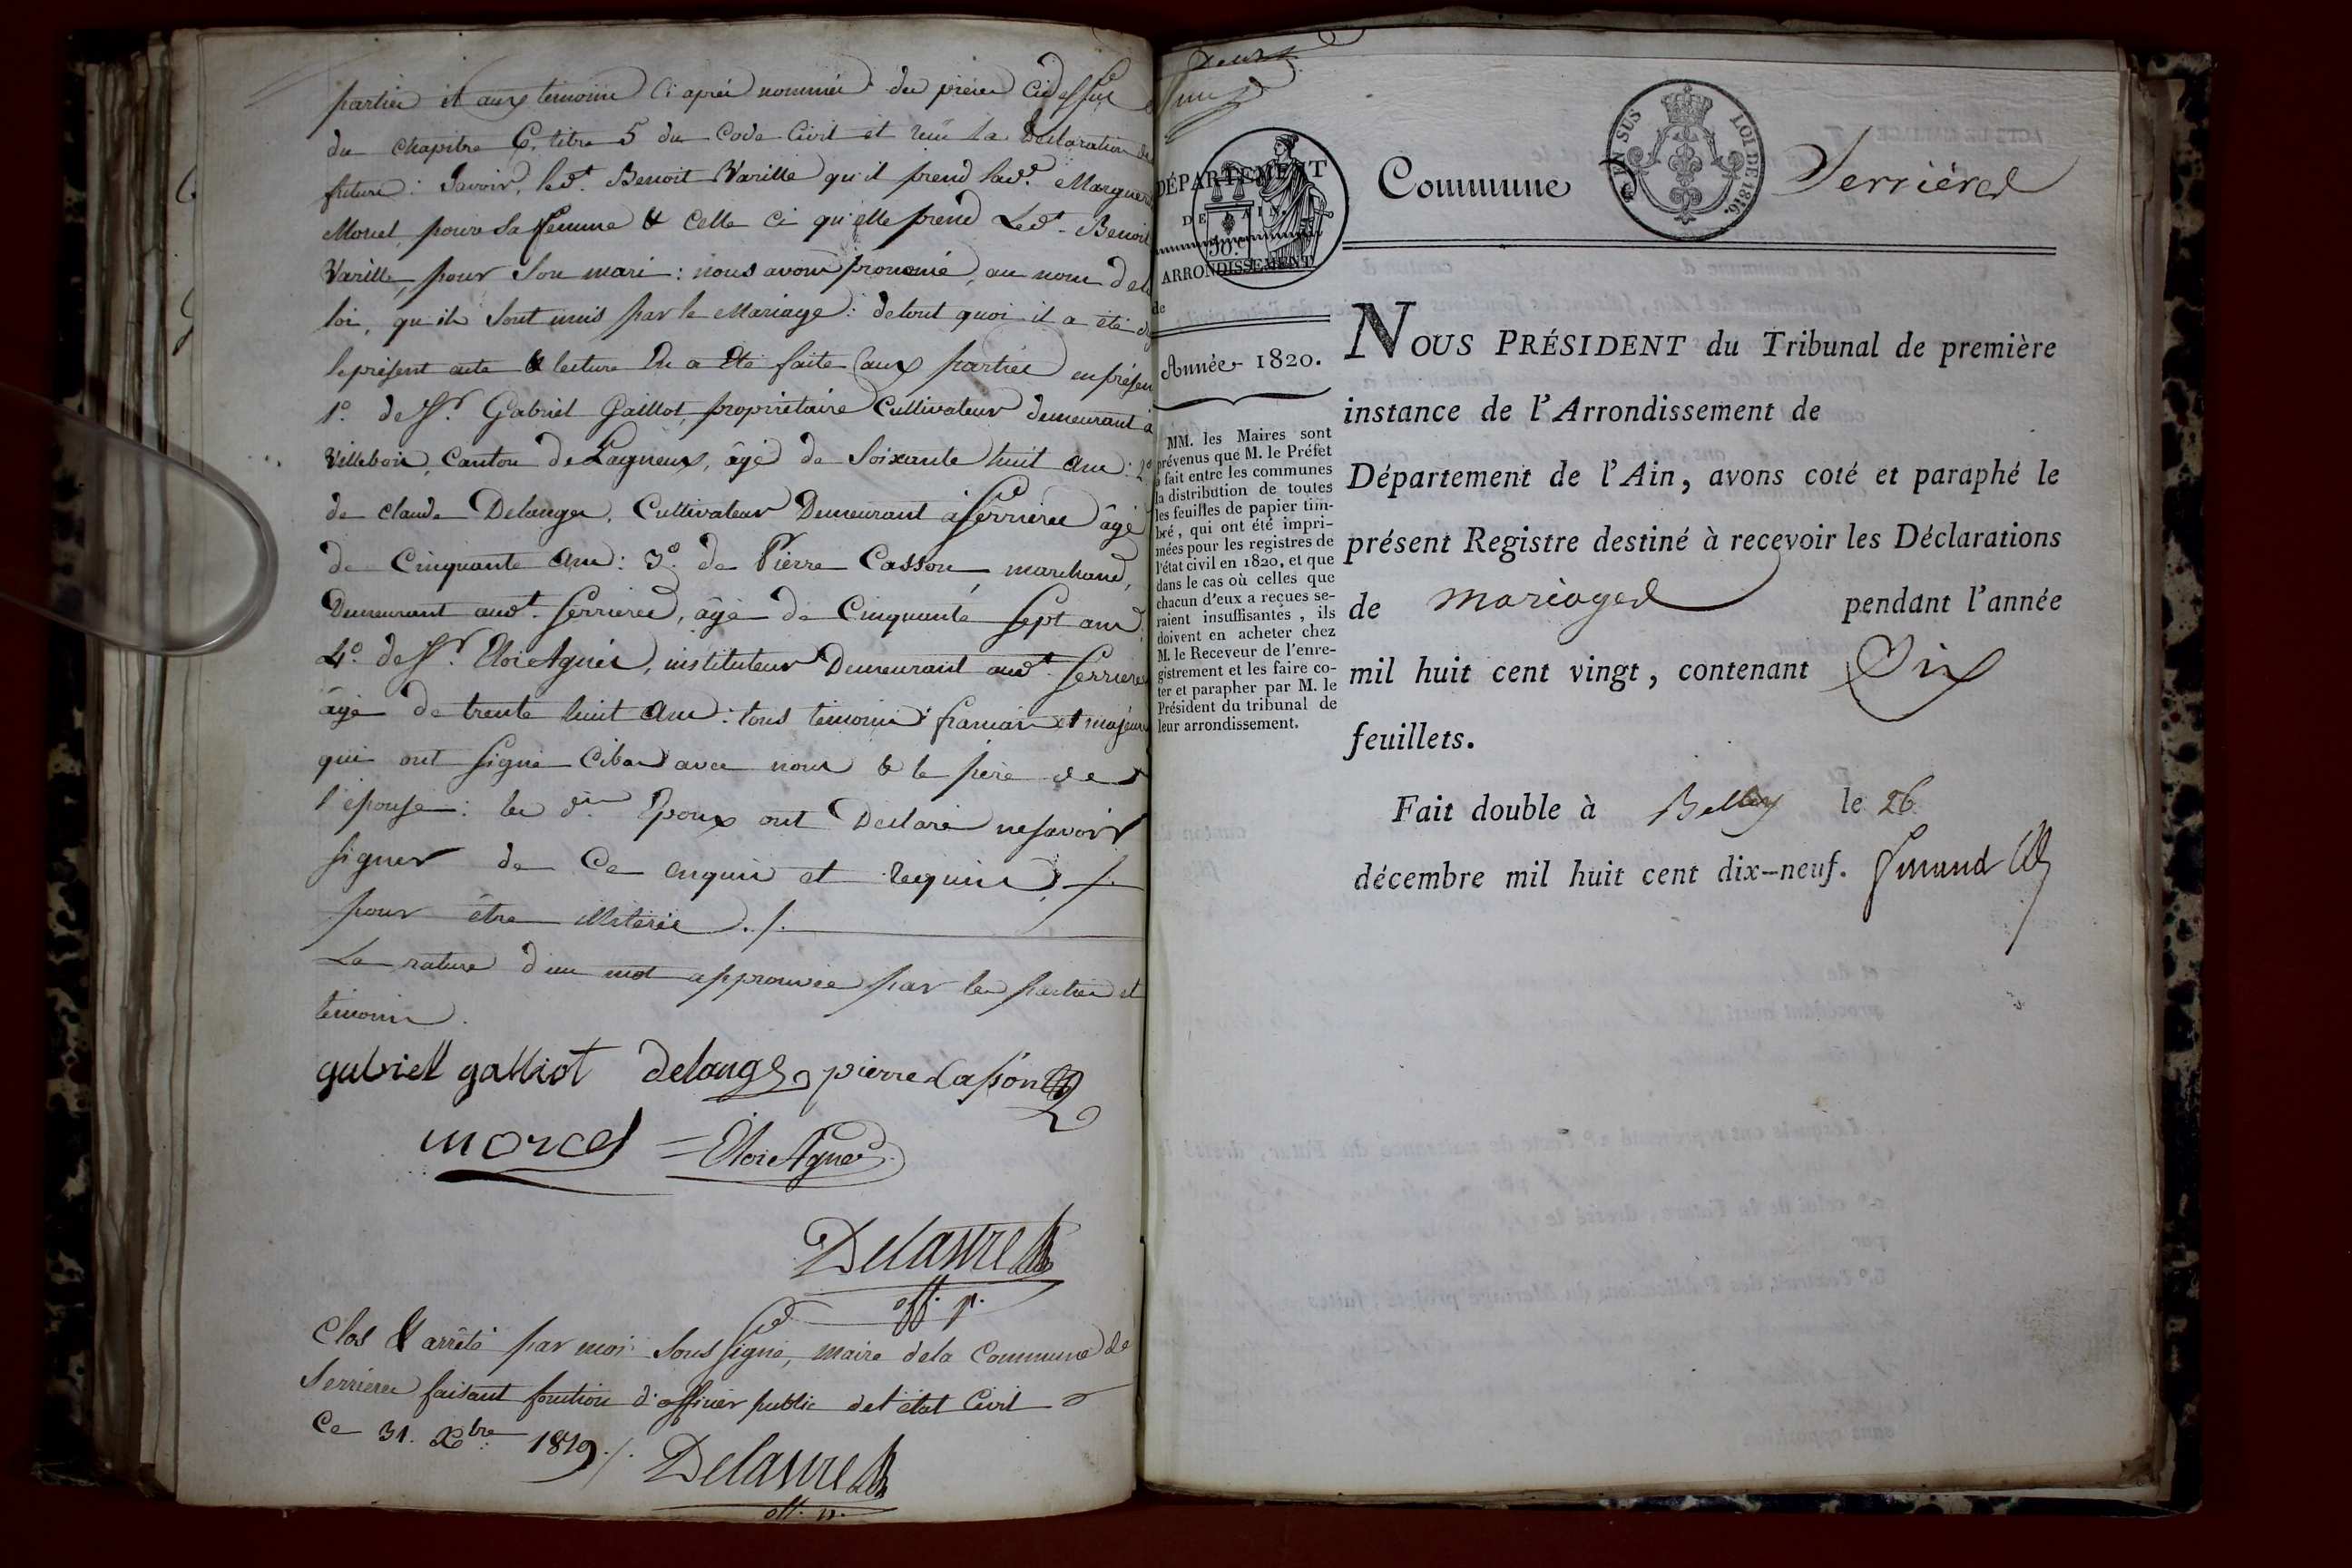 parties et aux temoins ci après nommés des pièces cidessus
du chapitre 6. titre 5 du Code Civil et reçu la Déclaration des
futurs: Savoir, led.t Benoit Varille qu'il prend lad.e Marguer
Morel, pour sa femme & celle ci qu'elle prend Led.t Benoit
Varille, pour son mari: nous avons prononcé, au nom de la
loi, qu'ils sont unis par le Mariage: detout quoi il a été
leprésent acte & lecture En a été faite aux parties enprésen
1.º de S.r Gabriel Gailliot, propriétaire Cultivateur demeurant à
Villebois, Canton de Lagneux, âgé de Soixante huit Ans: 2º
de claude Delange, Cultivateur Demeurant à Serrieres âgé
de Cinquante Ans: 3.º de Pierre Casson, marchand,
Demeurant aud.t Serrieres, âgé de Cinquante Sept ans
4.º de S.r Eloi Agnès, instituteur Demeurant aud.t Serrieres
âgé de trente huit Ans: tous témoins français et majeurs
qui ont Signé Cibas avec nous & le père de
l'épouse: les d.ts Epoux ont Déclaré nesavoir
signer de Ce enquis et requis ./.
pour être illiterés ./.
La rature d'un mot approuvée par les parties et
témoins.
gabriell galliot delange pierre Casson
morel Eloi Agnès
Delastre
off. p.
Clos & arrêté par moi Soussigné, maire dela Commune de
Serrieres faisant fonction d'officier public del'état Civil
Ce 31. Xbre 1819 ./. Delastre
off. p.
DÉPARTEMENT
DE L'AIN.
50.
ARRONDISSEMENT
de
Année 1820.
MM. les Maires sont
prévenus que M. le Préfet
a fait entre les communes
la distribution de toutes
les feuilles de papier tim-
bré, qui ont été impri-
mées pour les registres de
l'état civil en 1820, et que
dans le cas où celles que
chacun d'eux a reçues se-
raient insuffisantes, ils
doivent en acheter chez
M. le Receveur de l'enre-
gistrement et les faire co-
ter et parapher par M. le
Président du tribunal de
leur arrondissement.
Commune de Serrières
EN SUS LOI DE 1816.
NOUS PRÉSIDENT du Tribunal de première
instance de l'Arrondissement de
Département de l'Ain, avons coté et paraphé le
présent Registre destiné à recevoir les Déclarations
de mariages pendant l'année
mil huit cent vingt, contenant Dix
feuillets.
Fait double à Belley le 26
décembre mil huit cent dix-neuf.